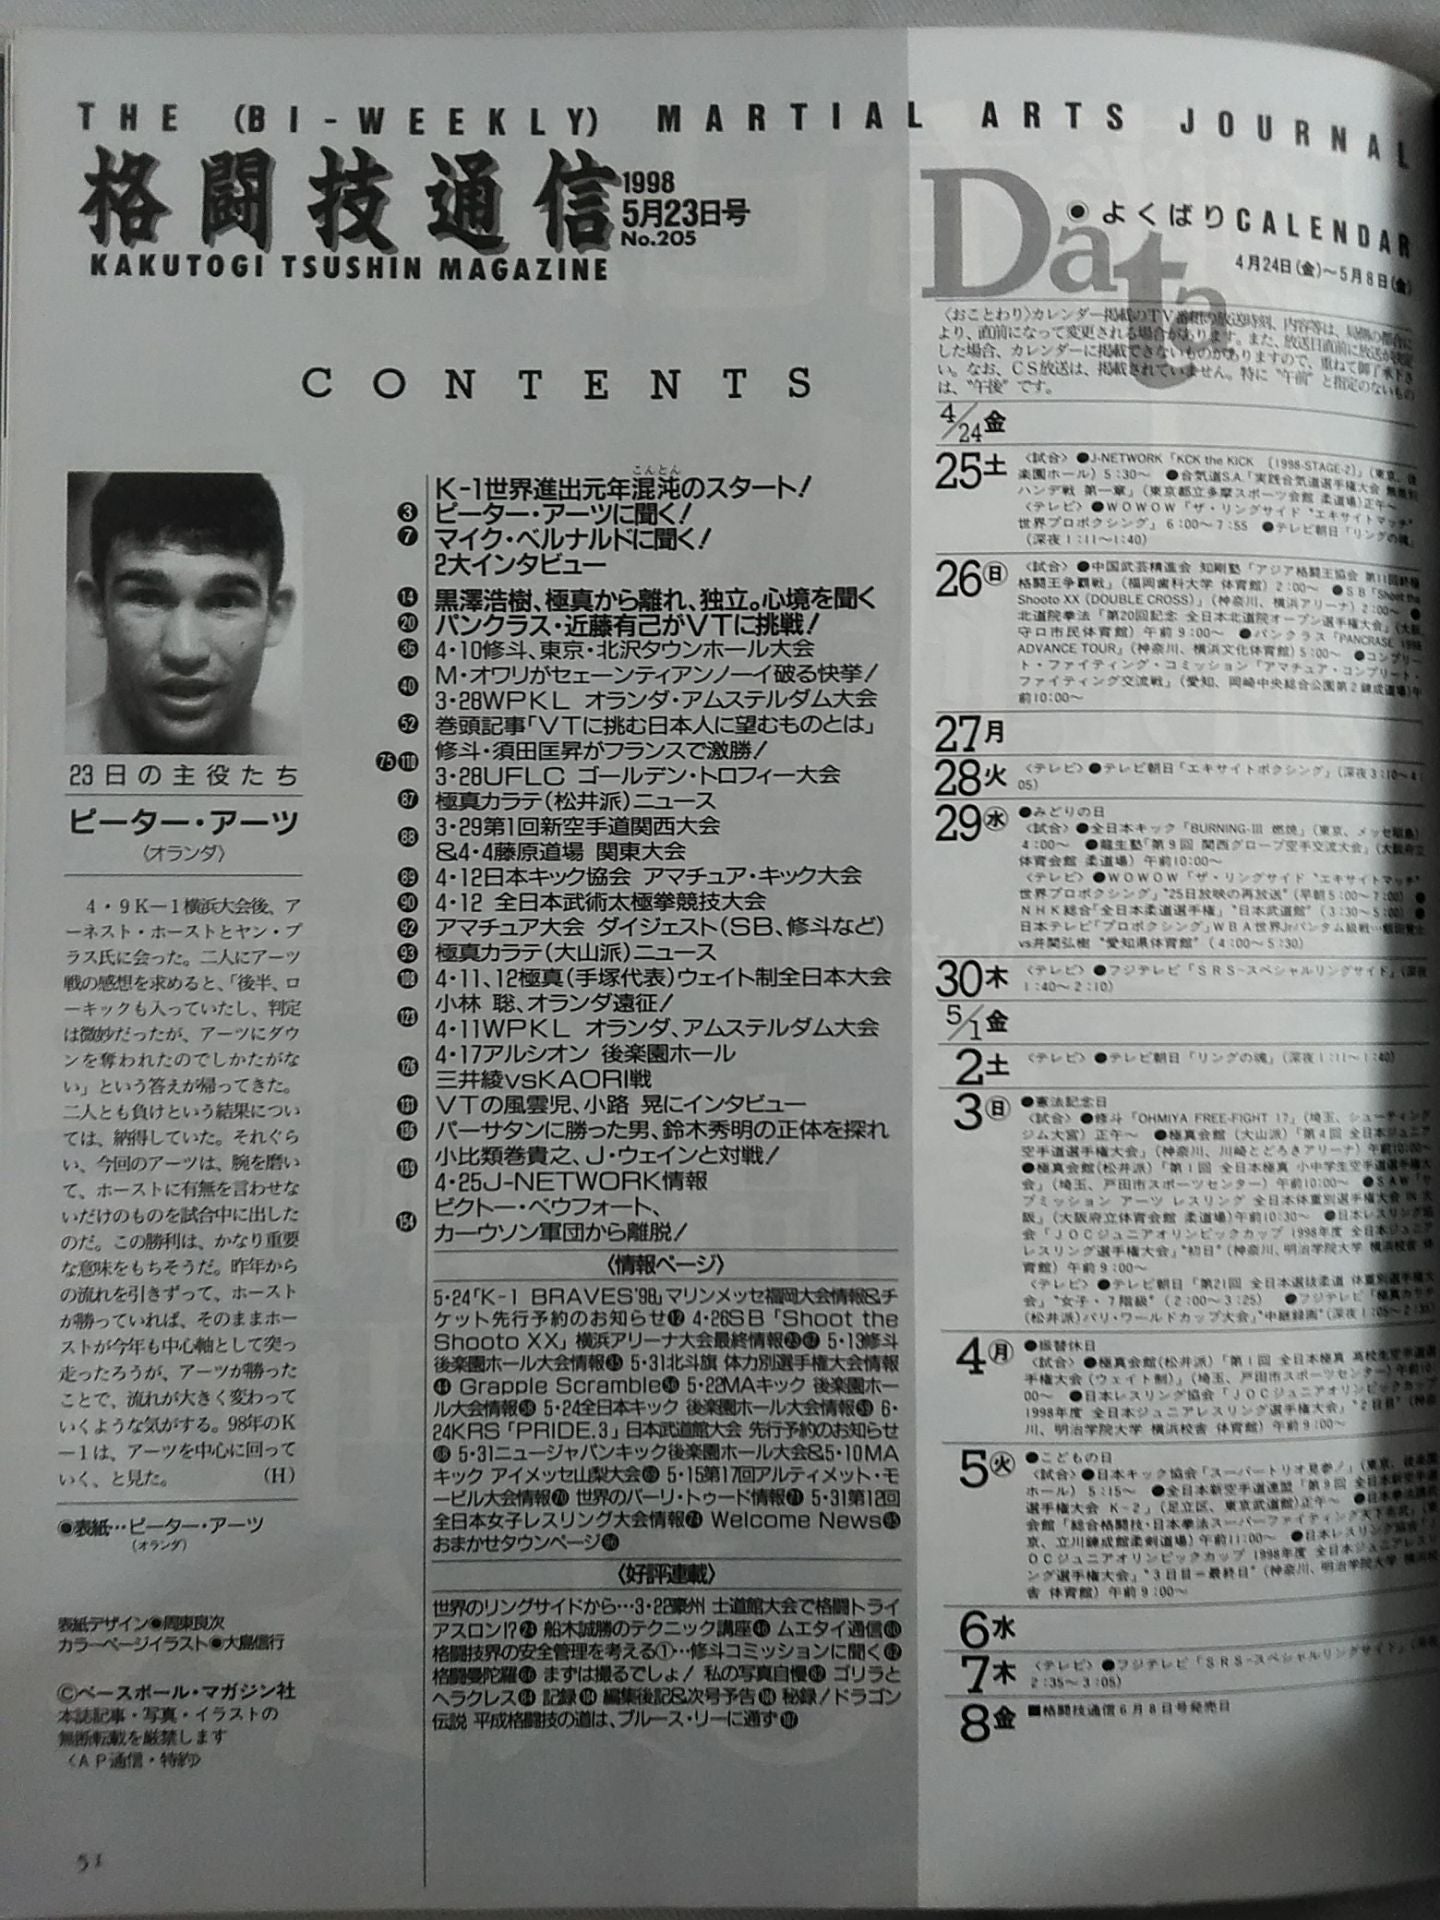 THE (BI-WEEKLY) MARTIAL ARTS JOURNAL
格闘技通信
1998
5月23日号
No.205
KAKUTOGI TSUSHIN MAGAZINE
CONTENTS
23日の主役たち
ピーター・アーツ
(オランダ)
4・9K-1横浜大会後、ア
ーネスト・ホーストとヤン・プ
ラス氏に会った。二人にアーツ
戦の感想を求めると、「後半、ロ
ーキックも入っていたし、判定
は微妙だったが、アーツにダウ
ンを奪われたのでしかたがな
い」という答えが帰ってきた。
二人とも負けという結果につい
ては、納得していた。それぐら
い、今回のアーツは、腕を磨い
て、ホーストに有無を言わせな
いだけのものを試合中に出した
のだ。この勝利は、かなり重要
な意味をもちそうだ。昨年から
の流れを引きずって、ホースト
が勝っていれば、そのままホー
ストが今年も中心軸として突っ
走ったろうが、アーツが勝った
ことで、流れが大きく変わって
いくような気がする。98年のK
-1は、アーツを中心に回って
いく、と見た。 (H)
●表紙…ピーター・アーツ
(オランダ)
表紙デザイン●周東良次
カラーページイラスト●大島信行
©ベースボール・マガジン社
本誌記事・写真・イラストの
無断転載を厳禁します
〈AP通信・特約〉
51
こんとん
K-1世界進出元年混沌のスタート!
3 ピーター・アーツに聞く!
7 マイク・ベルナルドに聞く!
2大インタビュー
14 黒澤浩樹、極真から離れ、独立。心境を聞く
20 パンクラス・近藤有己がVTに挑戦!
36 4・10修斗、東京・北沢タウンホール大会
40 M・オワリがセェーンティアンノーイ破る快挙!
3・28WPKL オランダ・アムステルダム大会
52 巻頭記事「VTに挑む日本人に望むものとは」
75 110 修斗・須田匡昇がフランスで激勝!
3・28UFLC ゴールデン・トロフィー大会
87 極真カラテ(松井派)ニュース
88 3・29第1回新空手道関西大会
&4・4藤原道場 関東大会
89 4・12日本キック協会 アマチュア・キック大会
90 4・12 全日本武術太極拳競技大会
92 アマチュア大会 ダイジェスト(SB、修斗など)
93 極真カラテ(大山派)ニュース
108 4・11、12極真(手塚代表)ウェイト制全日本大会
123 小林 聡、オランダ遠征!
4・11WPKL オランダ、アムステルダム大会
126 4・17アルシオン 後楽園ホール
三井綾vsKAORI戦
131 VTの風雲児、小路 晃にインタビュー
136 パーサタンに勝った男、鈴木秀明の正体を探れ
139 小比類巻貴之、J・ウェインと対戦!
4・25J-NETWORK情報
154 ビクトー・ベウフォート、
カーウソン軍団から離脱!
〈情報ページ〉
5・24「K-1 BRAVES'98」マリンメッセ福岡大会情報&チ
ケット先行予約のお知らせ12 4・26SB「Shoot the
Shooto XX」横浜アリーナ大会最終情報 5・13修斗
後楽園ホール大会情報 5・31北斗旗 体力別選手権大会情報
Grapple Scramble 5・22MAキック 後楽園ホー
ル大会情報 5・24全日本キック 後楽園ホール大会情報 6・
24KRS「PRIDE.3」日本武道館大会 先行予約のお知らせ
5・31ニュージャパンキック後楽園ホール大会&5・10MA
キック アイメッセ山梨大会 5・15第17回アルティメット・モ
ービル大会情報 世界のバーリ・トゥード情報 5・31第12回
全日本女子レスリング大会情報 Welcome News
おまかせタウンページ
〈好評連載〉
世界のリングサイドから…3・22豪州 士道館大会で格闘トライ
アスロン!? 船木誠勝のテクニック講座 ムエタイ通信
格闘技界の安全管理を考える①…修斗コミッションに聞く
格闘曼陀羅 まずは撮るでしょ! 私の写真自慢 ゴリラと
ヘラクレス 記録 編集後記&次号予告 秘録!ドラゴン
伝説 平成格闘技の道は、ブルース・リーに通ず
Data
●よくばりCALENDAR
4月24日(金)〜5月8日(金)
〈おことわり〉カレンダー掲載のTV番組の放送時刻、内容等は、局側の都合に
より、直前になって変更される場合があります。また、放送日直前に放送が決定
した場合、カレンダーに掲載できないものがありますので、重ねて御了承下さ
い。なお、CS放送は、掲載されていません。特に“午前”と指定のないもの
は、“午後”です。
4/24金
25土 〈試合〉●J-NETWORK「KCK the KICK 〔1998-STAGE-2〕」(東京、後
楽園ホール)5:30〜 ●合気道S.A.「実践合気道選手権大会 無差別
ハンデ戦 第一章」(東京都立多摩スポーツ会館 柔道場)正午〜
〈テレビ〉●WOWOW「ザ・リングサイド“エキサイトマッチ”
世界プロボクシング」6:00〜7:55 ●テレビ朝日「リングの魂」
(深夜1:11〜1:40)
26日 〈試合〉●中国武芸精進会 知剛塾「アジア格闘王協会 第11回終極
格闘王争覇戦」(福岡歯科大学 体育館)2:00〜 ●SB「Shoot the
Shooto XX(DOUBLE CROSS)」(神奈川、横浜アリーナ)2:00〜 ●
北道院拳法「第20回記念 全日本北道院オープン選手権大会」(大阪、
守口市民体育館)午前9:00〜 ●パンクラス「PANCRASE 1998
ADVANCE TOUR」(神奈川、横浜文化体育館)5:00〜 ●コンプリー
ト・ファイティング・コミッション「アマチュア・コンプリート・
ファイティング交流戦」(愛知、岡崎中央総合公園第2錬成道場)午
前10:00〜
27月
28火 〈テレビ〉●テレビ朝日「エキサイトボクシング」(深夜3:10〜4:
05)
29水 ●みどりの日
〈試合〉●全日本キック「BURNING-III 燃焼」(東京、メッセ昭島)
4:00〜 ●龍生塾「第9回 関西グローブ空手交流大会」(大阪府立
体育会館 柔道場)午前10:00〜
〈テレビ〉●WOWOW「ザ・リングサイド“エキサイトマッチ”
世界プロボクシング」“25日放映の再放送”(早朝5:00〜7:00) ●
NHK総合「全日本柔道選手権」“日本武道館”(3:30〜5:00) ●
日本テレビ「プロボクシング」WBA世界Jrバンタム級戦…飯田覚士
vs井関弘樹“愛知県体育館”(4:00〜5:30)
30木 〈テレビ〉●フジテレビ「SRS-スペシャルリングサイド」(深夜
1:40〜2:10)
5/1金
2土 〈テレビ〉●テレビ朝日「リングの魂」(深夜1:11〜1:40)
3日 ●憲法記念日
〈試合〉●修斗「OHMIYA FREE-FIGHT 17」(埼玉、シューティング
ジム大宮)正午〜 ●極真会館(大山派)「第4回 全日本ジュニア
空手道選手権大会」(神奈川、川崎とどろきアリーナ)午前10:00〜
●極真会館(松井派)「第1回 全日本極真 小中学生空手道選手権大
会」(埼玉、戸田市スポーツセンター)午前10:00〜 ●SAW「サ
ブミッション アーツ レスリング 全日本体重別選手権大会 IN 大
阪」(大阪府立体育会館 柔道場)午前10:30〜 ●日本レスリング協
会「JOCジュニアオリンピックカップ 1998年度 全日本ジュニア
レスリング選手権大会」“初日”(神奈川、明治学院大学 横浜校舎 体
育館)午前9:00〜
〈テレビ〉●テレビ朝日「第21回 全日本選抜柔道 体重別選手権大
会」“女子・7階級”(2:00〜3:25) ●フジテレビ「極真カラテ
(松井派)パリ・ワールドカップ大会」“中継録画”(深夜1:05〜2:35)
4月 ●振替休日
〈試合〉●極真会館(松井派)「第1回 全日本極真 高校生空手道選
手権大会(ウェイト制)」(埼玉、戸田市スポーツセンター)午前10:
00〜 ●日本レスリング協会「JOCジュニアオリンピックカップ
1998年度 全日本ジュニアレスリング選手権大会」“2日目”(神奈
川、明治学院大学 横浜校舎 体育館)午前9:00〜
5火 ●こどもの日
〈試合〉●日本キック協会「スーパートリオ見参!」(東京、後楽園
ホール)5:15〜 ●全日本新空手道連盟「第9回 全日本新空手道
選手権大会 K-2」(足立区、東京武道館)正午〜 ●日本拳法
会館「総合格闘技・日本拳法スーパーファイティング天下名武」(東
京、立川錬成館柔剣道場)午前11:00〜 ●日本レスリング協会「J
OCジュニアオリンピックカップ 1998年度 全日本ジュニアレスリ
ング選手権大会」“3日目=最終日”(神奈川、明治学院大学 横浜校
舎 体育館)午前9:00〜
6水
7木 〈テレビ〉●フジテレビ「SRS-スペシャルリングサイド」(深夜
2:35〜3:05)
8金 ■格闘技通信6月8日号発売日